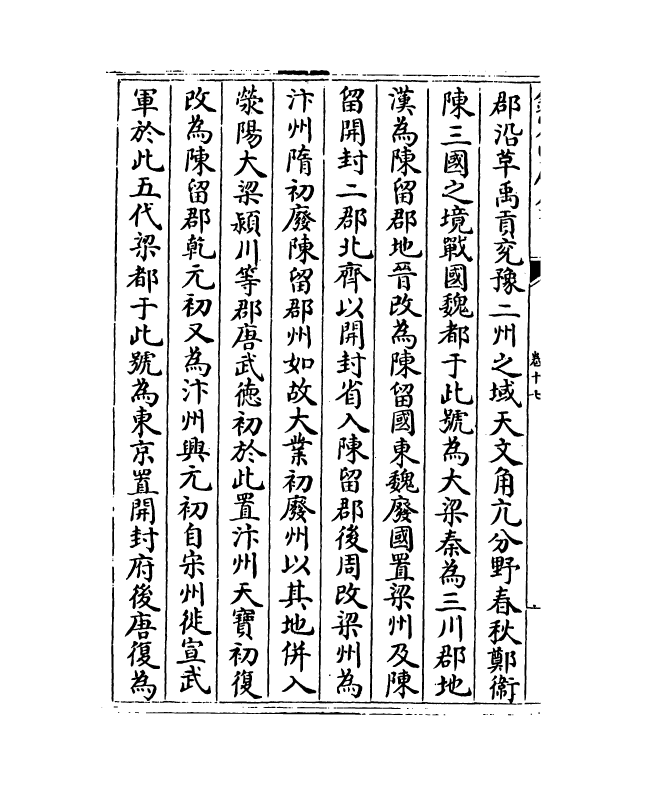 郡沿草禹貢兖豫二州之域天文角亢分野春秋鄭衛
陳三國之境戰國魏都于此號為大梁秦為三川郡地
漢為陳留郡地晉改為陳留國東魏廢國置梁州及陳
留開封二郡北齊以開封省入陳留郡後周改梁州為
汴州隋初廢陳留郡州如故大業初廢州以其地併入
滎陽大梁潁川等郡唐武徳初於此置汴州天寶初復
改為陳留郡乾元初又為汴州興元初自宋州徙宣武
軍於此五代梁都于此號為東京置開封府後唐復為
卷十七